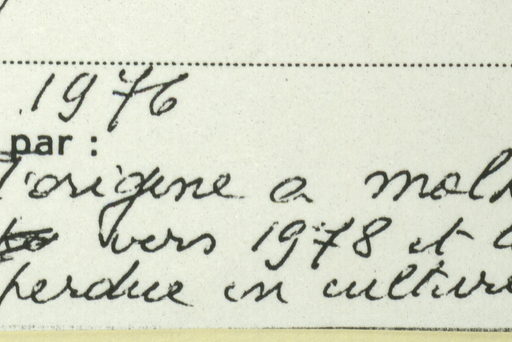 1976
par :
l'origine a malh
vers 1978 et
perdue en culture